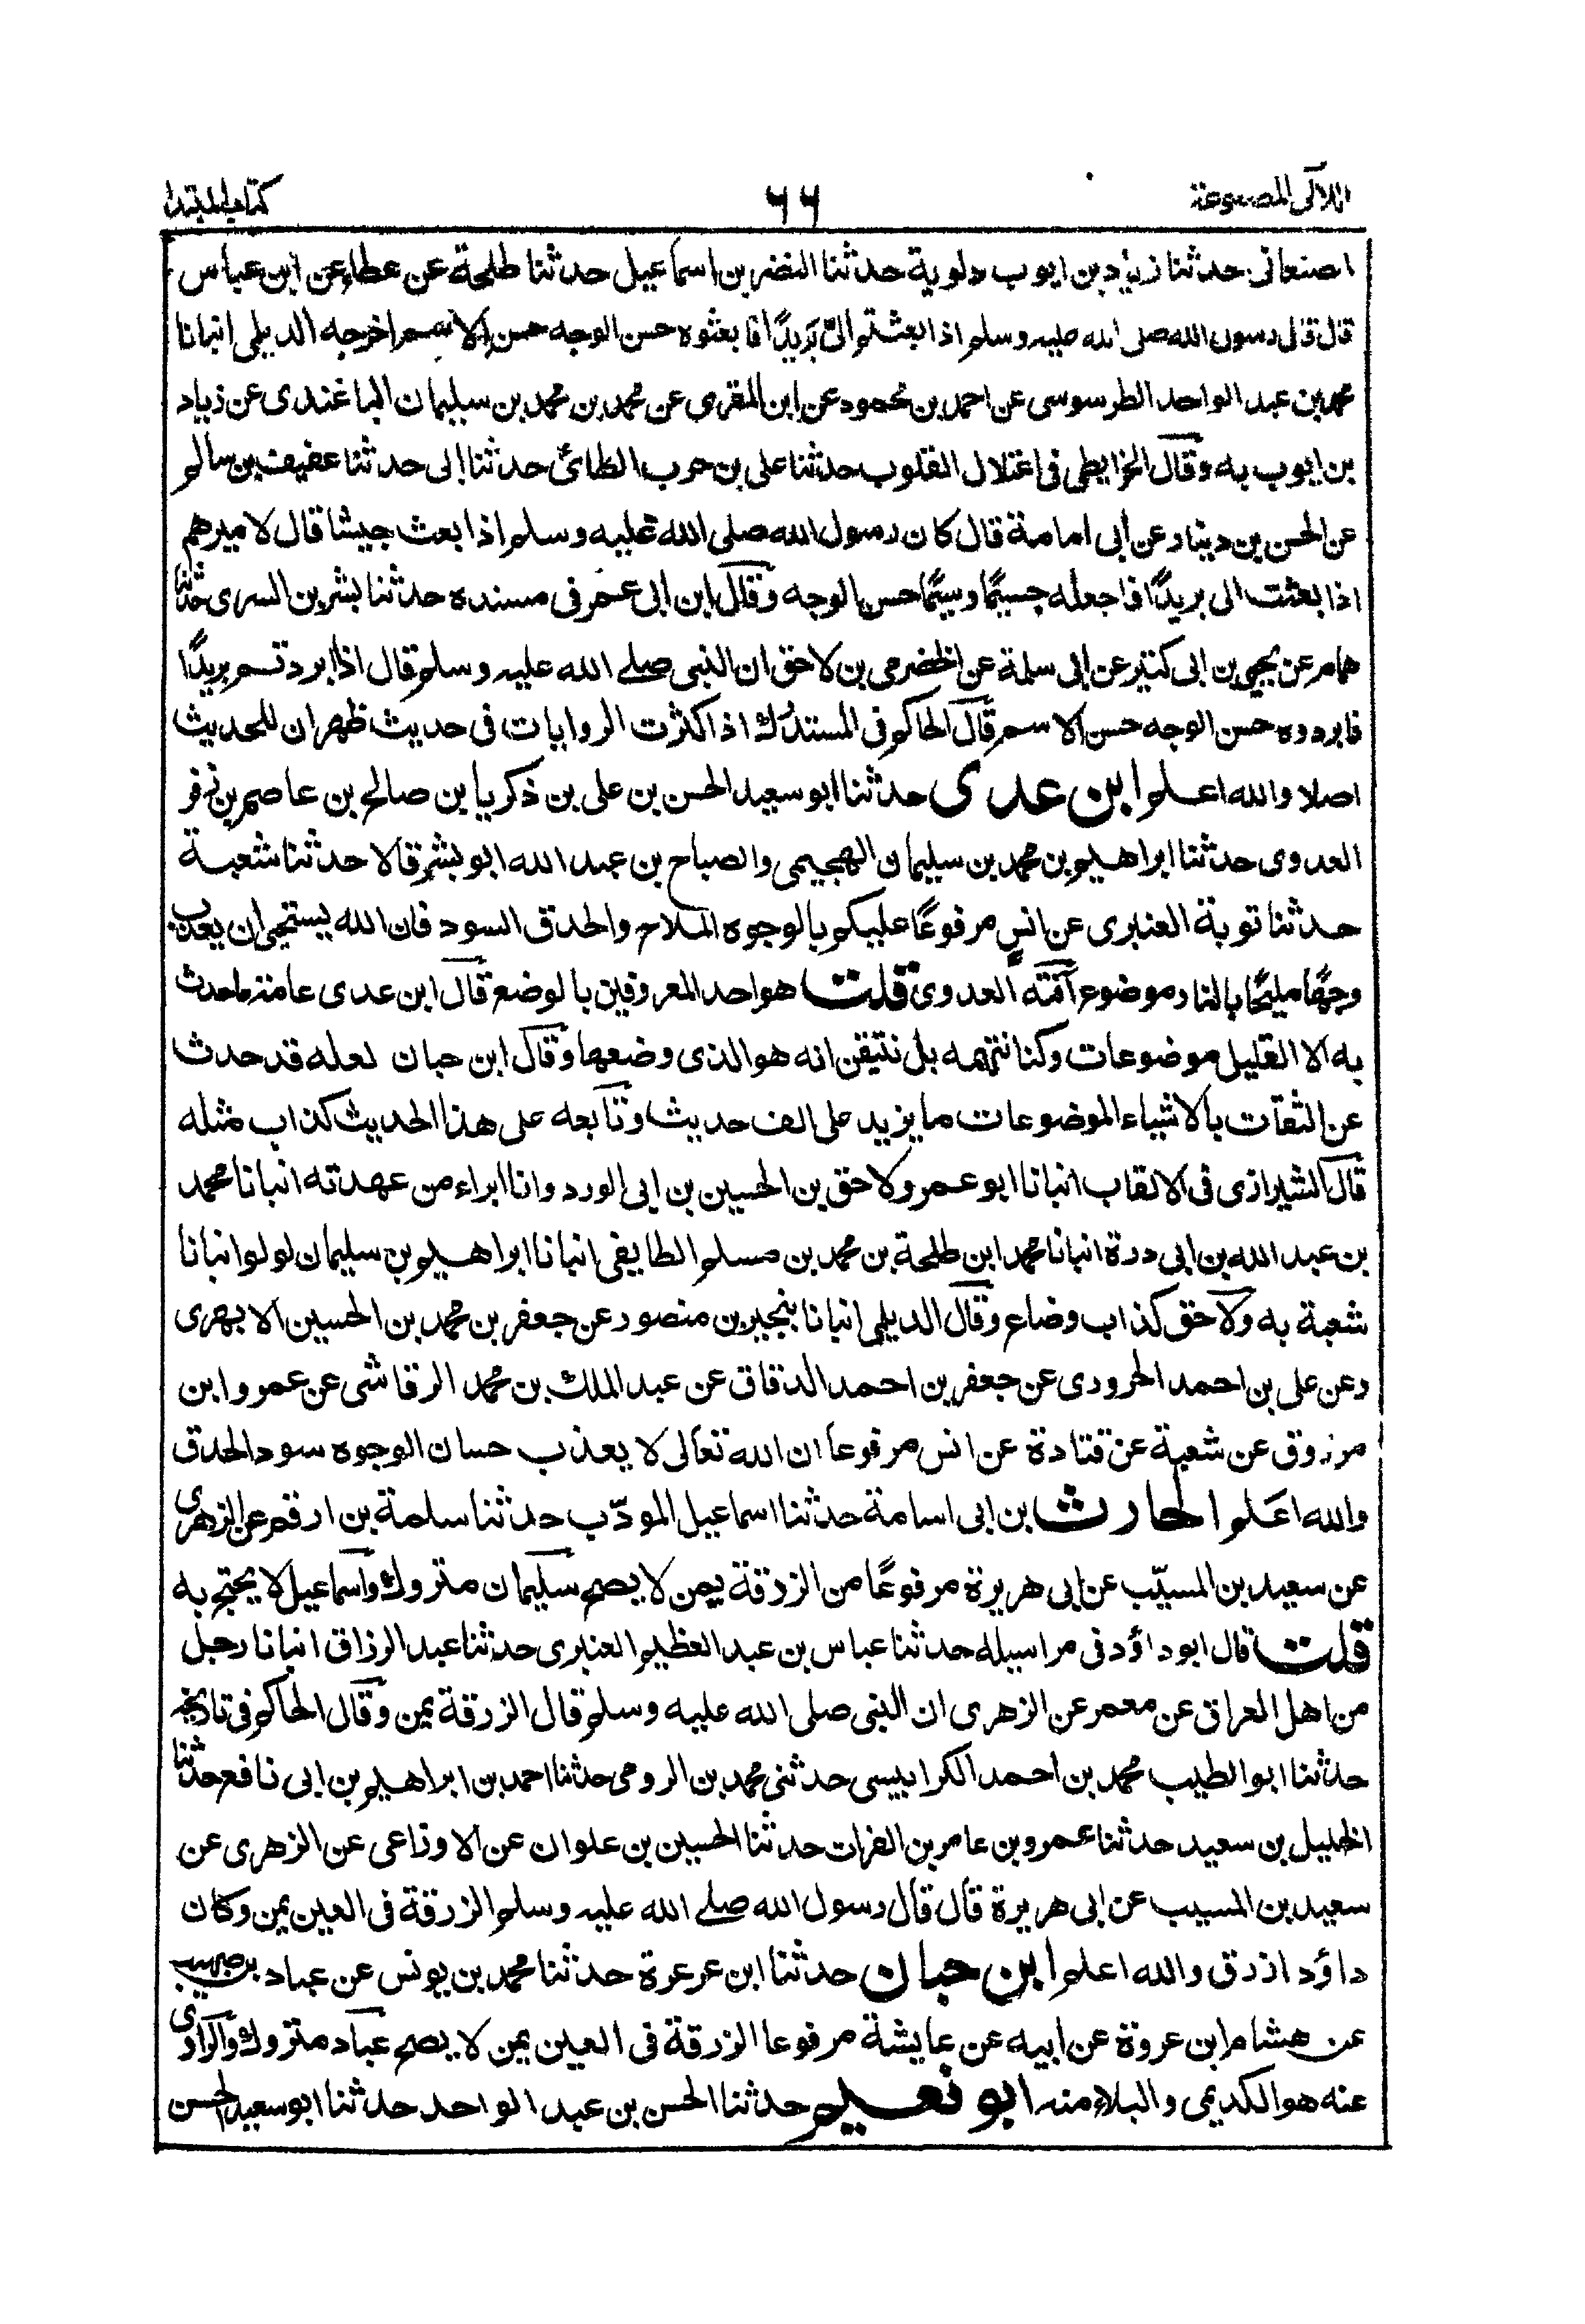 اللآلى المصنوعة
٦٦
كتاب المبتدا
اصنعانى حدثنا زياد بن ايوب دلوية حدثنا النضر بن اسماعيل حدثنا طلحة عن عطاء عن ابن عباس
قال قال رسول الله صلى الله عليه وسلم اذا بعثتم الىّ بَريدًا فابعثوه حسن الوجه حسن الاسم اخرجه الديلمى انبانا
محمد بن عبد الواحد الطرسوسى عن احمد بن محمود عن ابن المقرى عن محمد بن محمد بن سليمان الباغندى عن زياد
بن ايوب به وقال الخرايطى فى اعتلال القلوب حدثنا على بن حرب الطائى حدثنا ابى حدثنا عفيف بن سالم
عن الحسن بن دينار عن أبى امامة قال كان رسول الله صلى الله عليه وسلم اذا بعث جيشا قال لاميرهم
اذا بعثت الى بريدًا فاجعله جسيمًا وسيمًا حسن الوجه وقال ابن ابى عمر فى مسنده حدثنا بشر بن السرى حدثنا
همام عن يحيى بن ابى كثير عن ابى سلمة عن الحضرمى بن لاحق ان النبى صلے الله عليه وسلم قال اذا ابردتم بريدًا
فابردوه حسن الوجه حسن الاسم قال الحاكم فى المستدرك اذا كثرت الروايات فى حديث ظهر ان للحديث
اصلا والله اعلم ابن عدى حدثنا ابو سعيد الحسن بن على بن ذكريا بن صالح بن عاصم بن زفر
العدوى حدثنا ابراهيم بن محمد بن سليمان الهجيمى والصباح بن عبد الله ابو بشر قالا حدثنا شعبة
حدثنا توبة العنبرى عن انس مرفوعًا عليكم بالوجوه الملاح والحدق السود فان الله يستحيى ان يعذب
وجهًا مليحًا بالنار موضوع آفته العدوى قلت هو احد المعروفين بالوضع قال ابن عدى عامة ما حدث
به الا القليل موضوعات وكنا نتهمه بل نتيقن انه هو الذى وضعها وقال ابن حبان لعله قد حدث
عن الثقات بالاشياء الموضوعات ما يزيد على الف حديث وتابعه على هذا الحديث كذاب مثله
قال الشيرازى فى الالقاب انبانا ابو عمرو لاحق بن الحسين بن ابى الورد وانا ابراء من عهدته انبانا محمد
بن عبد الله بن ابى درة انبانا محمد ابن طلحة بن محمد بن مسلم الطايفى انبانا ابراهيم بن سليمان لولوا انبانا
شعبة به ولاحق كذاب وضاع وقال الديلمى انبانا بنجير بن منصور عن جعفر بن محمد بن الحسين الابهرى
وعن على بن احمد الحرورى عن جعفر بن احمد الدقاق عن عبد الملك بن محمد الرقاشى عن عمرو ابن
مرزوق عن شعبة عن قتادة عن انس مرفوعا ان الله تعالى لا يعذب حسان الوجوه سود الحدق
والله اعلم الحارث بن ابى اسامة حدثنا اسماعيل المودّب حدثنا سلمة بن ارقم عن الزهرى
عن سعيد بن المسيّب عن ابى هريرة مرفوعًا من الزرقة يمن لا يصح سليمان متروك واسماعيل لا يحتج به
قلت قال ابو داؤد فى مراسيله حدثنا عباس بن عبد العظيم العنبرى حدثنا عبد الرزاق انبانا رجل
من اهل العراق عن معمر عن الزهرى ان النبى صلى الله عليه وسلم قال الزرقة يمن وقال الحاكم فى تاريخه
حدثنا ابو الطيب محمد بن احمد الكرابيسى حدثنى محمد بن الرومى حدثنا احمد بن ابراهيم بن ابى نافع حدثنا
الخليل بن سعيد حدثنا عمرو بن عامر بن الفرات حدثنا الحسين بن علوان عن الاوزاعى عن الزهرى عن
سعيد بن المسيب عن ابى هريرة قال قال رسول الله صلے الله عليه وسلم الزرقة فى العين يمن وكان
داؤد ازرق والله اعلم ابن حبان حدثنا ابن عرعرة حدثنا محمد بن يونس عن عباد بن صهيب
عن هشام ابن عروة عن ابيه عن عايشة مرفوعا الزرقة فى العين يمن لا يصح عباد متروك والراوى
عنه هو الكديمى والبلاء منه ابو نعيم حدثنا الحسن بن عبد الواحد حدثنا ابو سعيد الحسن